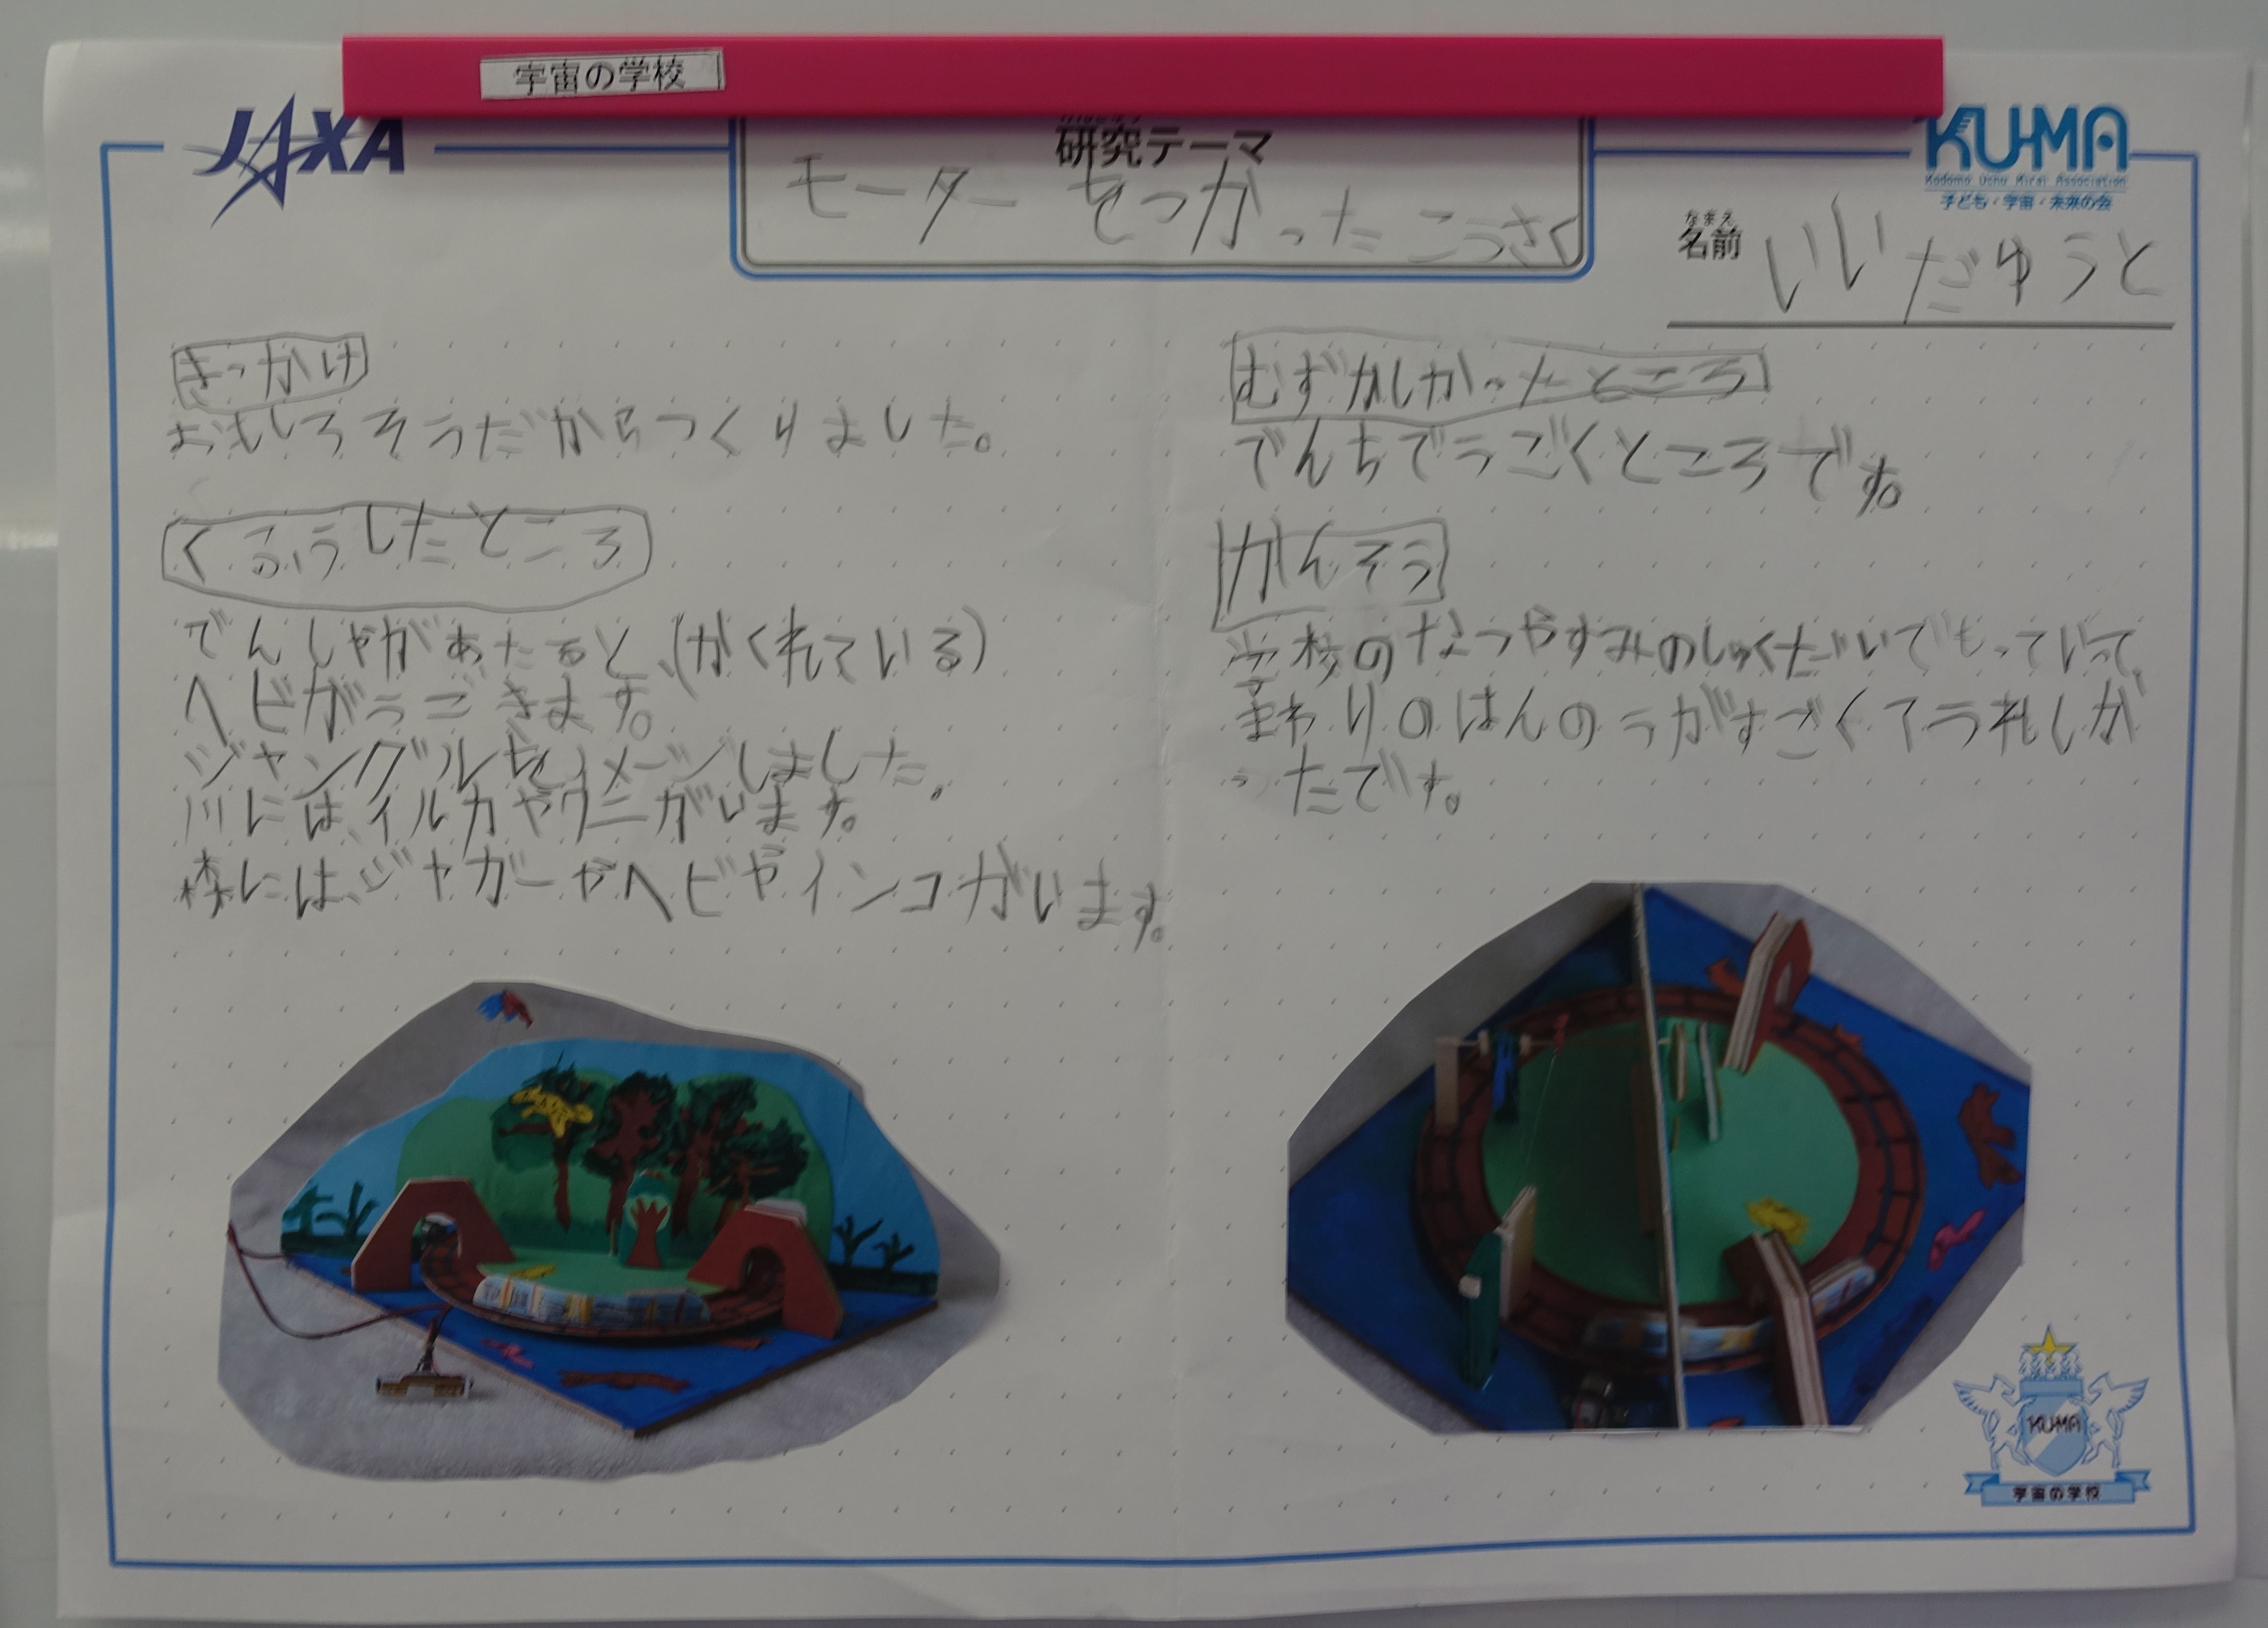 宇宙の学校
JAXA
研究テーマ
モーターをつかったこうさく
KU-MA
Kodomo Uchu Mirai Association
子ども・宇宙・未来の会
なまえ
名前
いいだゆうと
きっかけ
おもしろそうだからつくりました。
くふうしたところ
でんしゃがあたると、(かくれている)
ヘビがうごきます。
ジャングルをイメージしました。
川には、イルカやワニがいます。
森には、ジャガーやヘビやインコがいます。
むずかしかったところ
でんちでうごくところです。
かんそう
学校のなつやすみのしゅくだいでもっていって、
まわりのはんのうがすごくてうれしか
ったです。
KU-MA
宇宙の学校